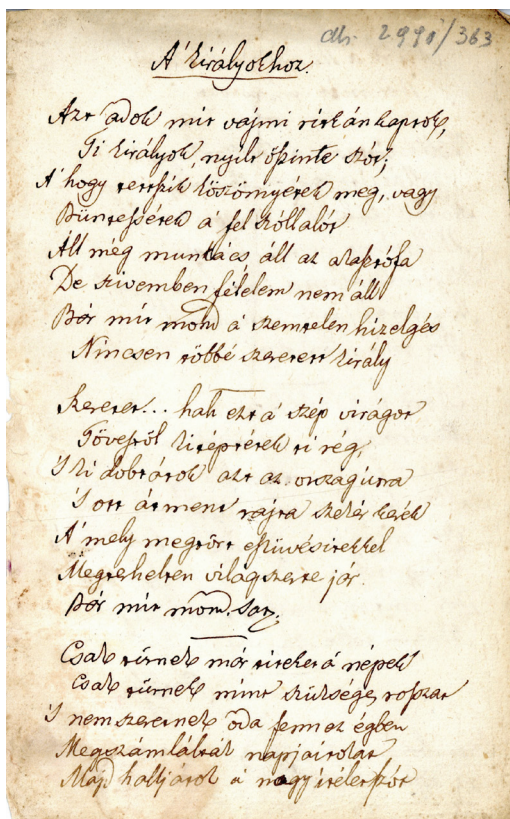 dh. 2990/363
A' Királyokhoz.
Azt adok mit vajmi ritkán kaptok,
Ti királyok, nyilt őszinte szót;
A' hogy tetszik köszönnyétek meg, vagy
Büntessétek a' fel szóllalót
Áll még munkács áll az akasztófa
De szivemben félelem nem áll
Bár mit mond a' szemtelen hizelgés
Nincsen többé szeretett király
Szeretet... hah ezt a' szép virágot
Tövestől kitéptétek ti rég,
'S ki dobtátok azt az országútra
'S ott átment rajta szekér kerék
A' mely megtört esküvésitekkel
Megterhelten világszerte jár.
Bár mit mond. sat;
Csak tűrnek már titeket a' népek
Csak tűrnek mint szükséges rosszat
'S nem szeretnek oda fenn ez égben
Megszámlálták napjaitokat
Majd halljátok a' nagy itéletszót